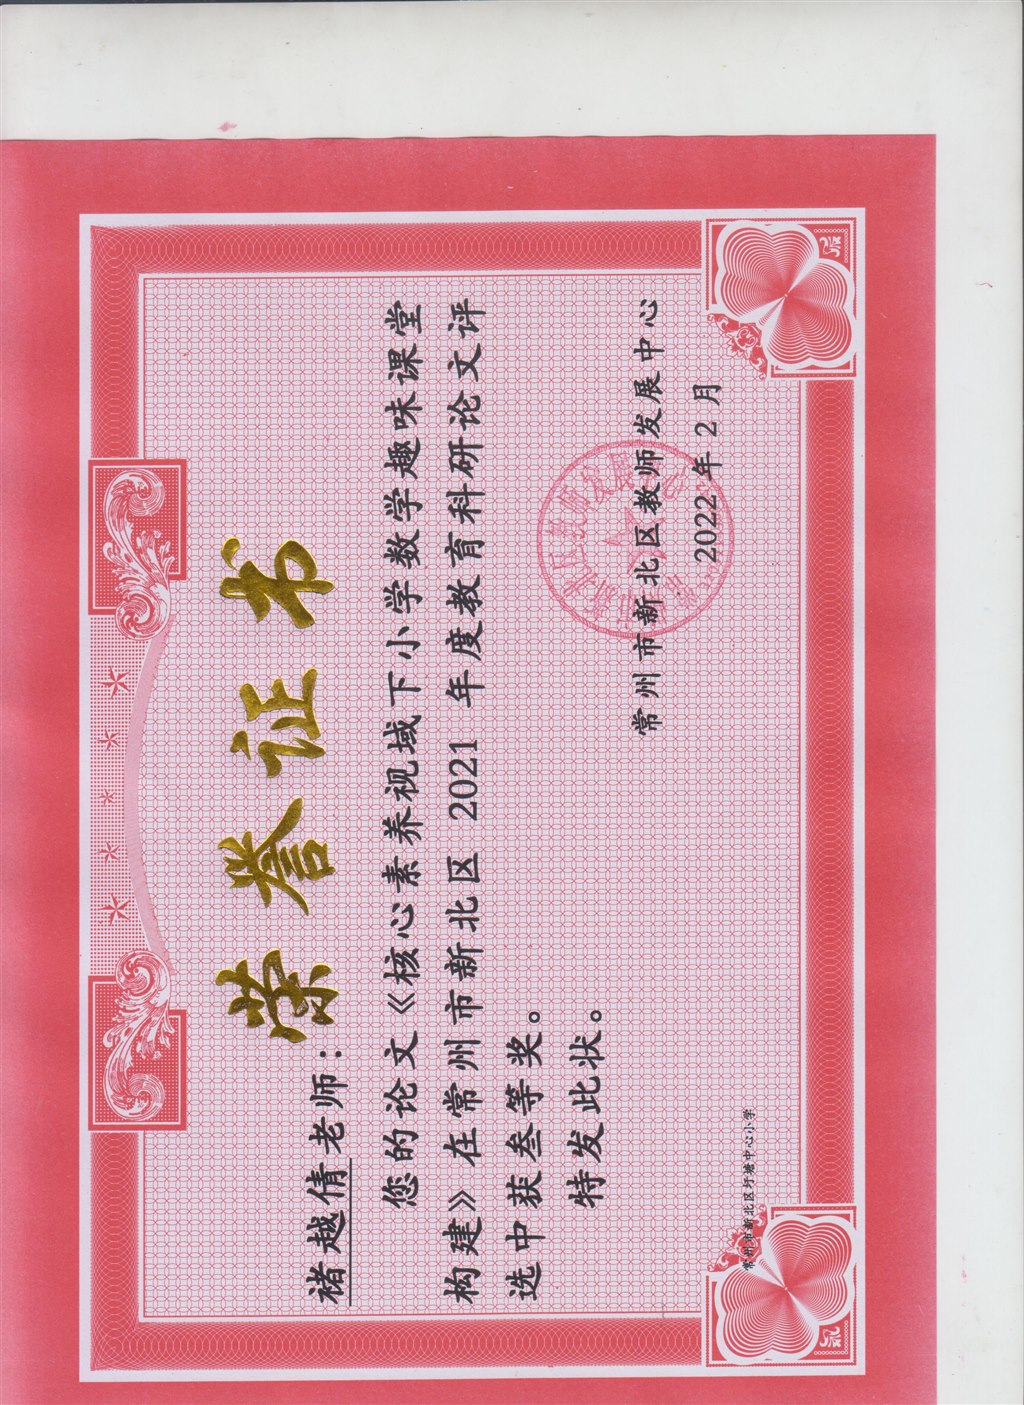 荣誉证书
褚越倩老师：
您的论文《核心素养视域下小学数学趣味课堂
构建》在常州市新北区 2021 年度教育科研论文评
选中获叁等奖。
特发此状。
常州市新北区教师发展中心
2022 年 2 月
常州市新北区圩塘中心小学